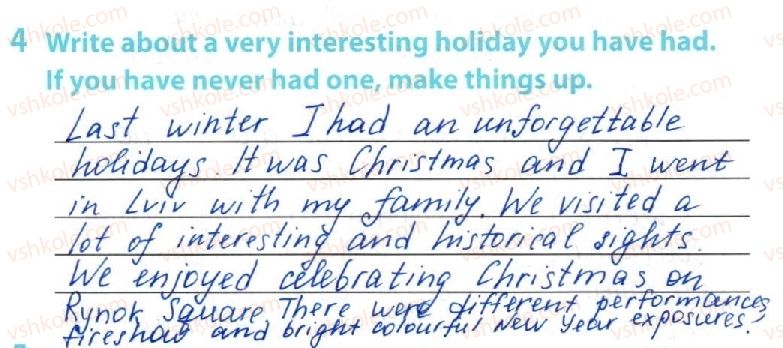 4 Write about a very interesting holiday you have had.
If you have never had one, make things up.
Last winter I had an unforgettable
holidays. It was Christmas and I went
in Lviv with my family. We visited a
lot of interesting and historical sights.
We enjoyed celebrating Christmas on
Rynok Square. There were different performances,
fireshow and bright colourful New Year exposures.